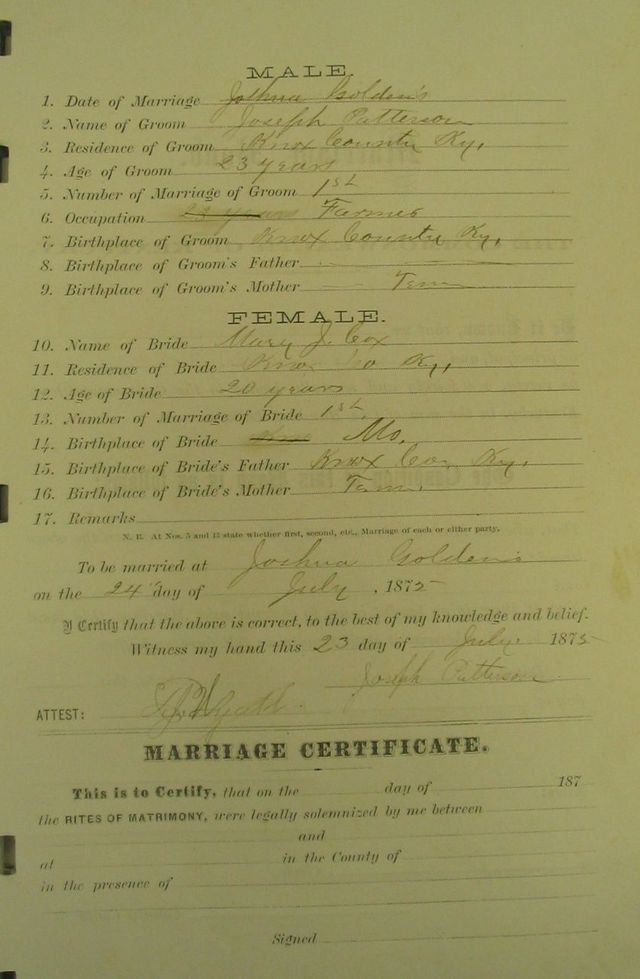 MALE.
1. Date of Marriage Joshua Golden's
2. Name of Groom Joseph Patterson
3. Residence of Groom Knox County Ky,
4. Age of Groom 23 years
5. Number of Marriage of Groom 1st
6. Occupation 23 years Farmer
7. Birthplace of Groom Knox County Ky,
8. Birthplace of Groom's Father
9. Birthplace of Groom's Mother Tenn
FEMALE.
10. Name of Bride Mary J. Cox
11. Residence of Bride Knox Co Ky,
12. Age of Bride 20 years
13. Number of Marriage of Bride 1st
14. Birthplace of Bride Knox Mo.
15. Birthplace of Bride's Father Knox Co, Ky.
16. Birthplace of Bride's Mother Tenn.
17. Remarks
N. B. At Nos. 5 and 13 state whether first, second, etc., Marriage of each or either party.
To be married at Joshua Golden's
on the 24th day of July, 1875
I Certify that the above is correct, to the best of my knowledge and belief.
Witness my hand this 23 day of July. 1875
Joseph Patterson
ATTEST:
MARRIAGE CERTIFICATE.
This is to Certify, that on the day of 187
the RITES OF MATRIMONY, were legally solemnized by me between
and
at in the County of
in the presence of
Signed